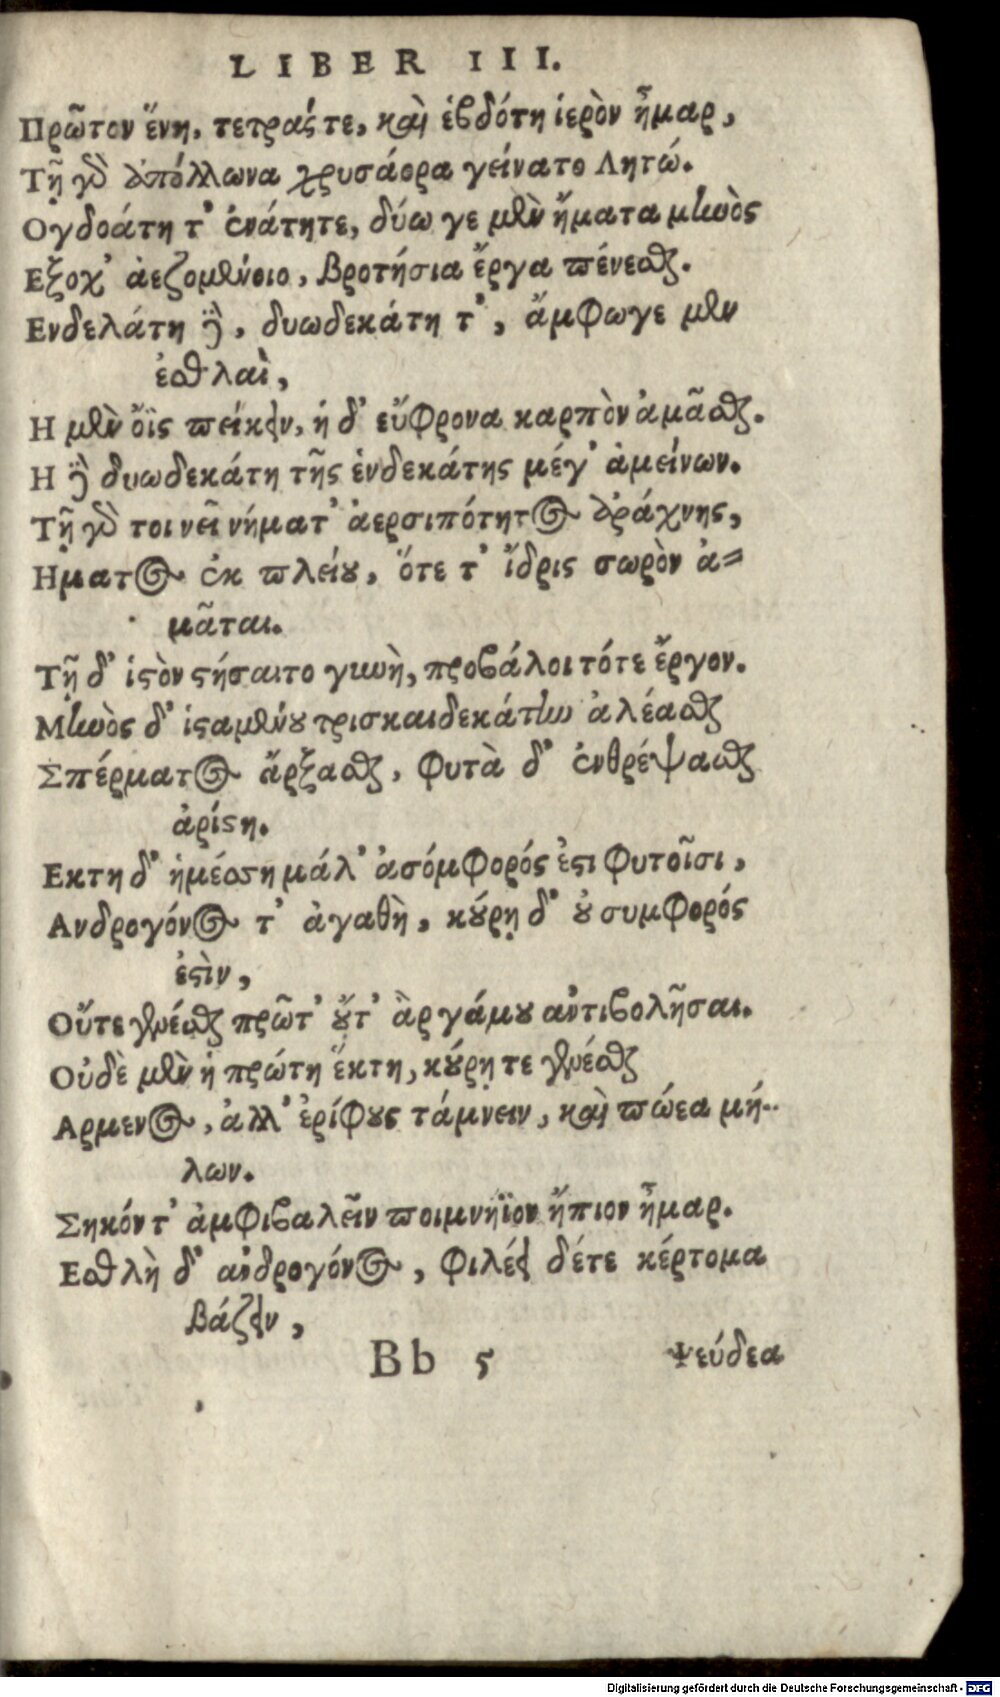 LIBER III.
Πρῶτον ἕνη, τετράς τε, καὶ ἑβδότη ἱερὸν ἦμαρ,
Τῇ γὰρ ἀπόλλωνα χρυσάορα γείνατο Λητώ.
Ογδοάτη τ' ἐνάτητε, δύω γε μὲν ἤματα μηνὸς
Εξοχ' ἀεζομένοιο, βροτήσια ἔργα πένεσθαι.
Ενδελάτη δὲ, δυωδεκάτη τ', ἄμφωγε μὲν
ἐσθλαὶ,
Η μὲν ὄϊς πείκειν, ἡ δ' εὔφρονα καρπὸν ἀμᾶσθαι.
Η δὲ δυωδεκάτη τῆς ἑνδεκάτης μέγ' ἀμείνων.
Τῇ γὰρ τοι νεῖ νήματ' ἀερσιπότητος ἀράχνης,
Ηματος ἐκ πλείου, ὅτε τ' ἴδρις σωρὸν ἀ=
μᾶται.
Τῇ δ' ἱστὸν στήσαιτο γυνὴ, προβάλοι τότε ἔργον.
Μηνὸς δ' ἱσταμένου τρισκαιδεκάτην ἀλέασθαι
Σπέρματος ἄρξασθαι, φυτὰ δ' ἐνθρέψασθαι
ἀρίστη.
Εκτη δ' ἡμέσση μάλ' ἀσύμφορός ἐστι φυτοῖσι,
Ανδρογόνος τ' ἀγαθὴ, κούρῃ δ' οὐ συμφορός
ἐστὶν,
Οὔτε γενέσθαι πρῶτ' οὔτ' ἂρ γάμου ἀντιβολῆσαι.
Οὐδὲ μὲν ἡ πρώτη ἕκτη, κούρῃ τε γενέσθαι
Αρμενος, ἀλλ' ἐρίφους τάμνειν, καὶ πώεα μή-
λων.
Σηκόν τ' ἀμφιβαλεῖν ποιμνήϊον ἤπιον ἦμαρ.
Εσθλὴ δ' ἀνδρογόνος, φιλέει δέτε κέρτομα
βάζειν,
Bb 5 Ψεύδεα
Digitalisierung gefördert durch die Deutsche Forschungsgemeinschaft - DFG